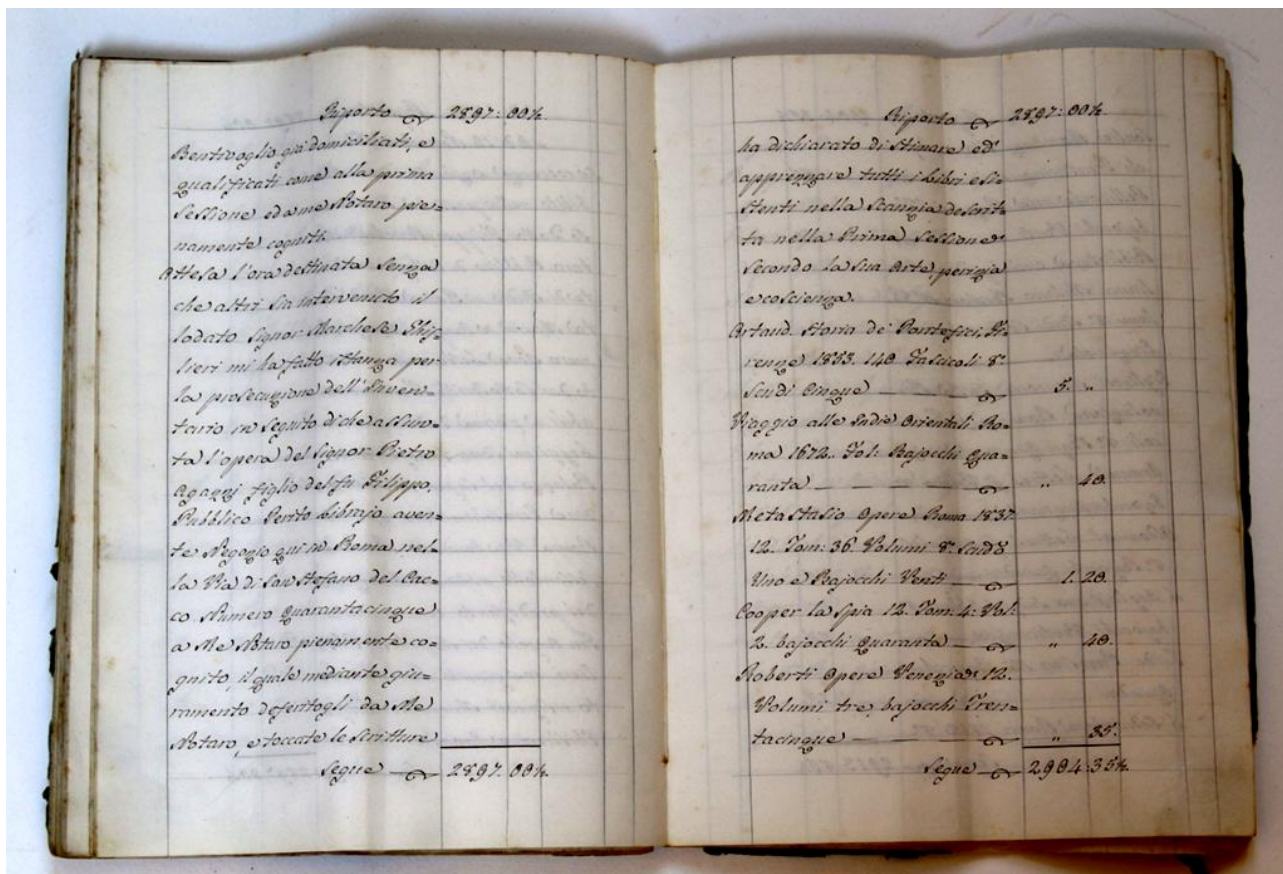 Riporto 2897: 00½
Bentivoglio già domiciliati, e
qualificati come alla prima
Sessione ed a me Notaro pie=
namente cogniti.
Attesa l'ora destinata senza
che altri sia intervenuto il
lodato Signor Marchese Ghis=
lieri mi ha fatto istanza per
la prosecuzione dell'Inven=
tario in seguito di che assun=
ta l'opera del Signor Pietro
Agazzi figlio del fu Filippo.
Pubblico Perito Librajo aven=
te Negozio qui in Roma nel=
la Via di San Stefano del Cac=
co Numero Quarantacinque
a Me Notaro pienamente co=
gnito, il quale mediante giu=
ramento deferitogli da Me
Notaro, e toccate le Scritture
Segue 2897. 00½
Riporto 2897: 00½
ha dichiarato di Stimare ed
apprezzare tutti i Libri esi=
stenti nella Scanzia descrit=
ta nella Prima Sessione
secondo la sua Arte, perizia
e coscienza.
Artaud. Storia de' Pontefici, Fi=
renze 1853. 140 Fascicoli 8°
Scudi Cinque 5. „
Viaggio alle Indie Orientali Ro=
ma 1672. Fol: Bajocchi Qua=
ranta „ 40.
Metastasio Opere Roma 1837
12. Tom: 36. Volumi 8° Scudo
Uno e Bajocchi Venti 1. 20.
Cooper la Spia 12. Tom: 4: Vol:
2. bajocchi Quaranta „ 40.
Roberti Opere Venezia 12.
Volumi tre, bajocchi Tren=
tacinque „ 35.
Segue 2904:35½